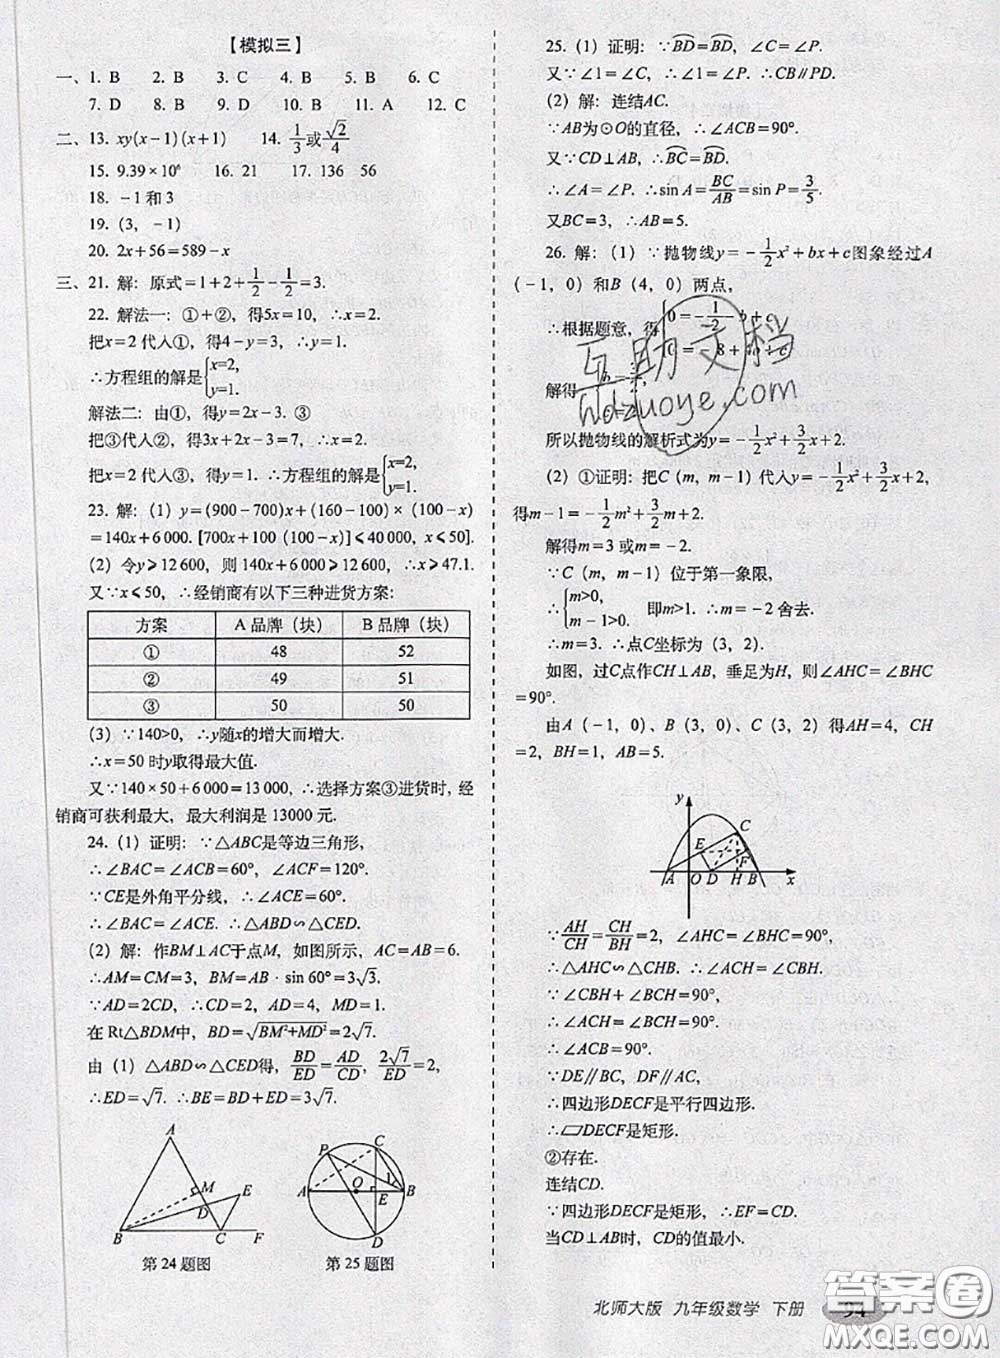 【模拟三】
一、1. B 2. B 3. C 4. B 5. B 6. C
7. D 8. B 9. D 10. B 11. A 12. C
二、13. xy(x－1)(x＋1) 14. 1/3或√2/4
15. 9.39×10⁶ 16. 21 17. 136 56
18. －1和3
19.（3，－1）
20. 2x＋56＝589－x
三、21. 解：原式＝1＋2＋1/2－1/2＝3.
22. 解法一：①＋②，得5x＝10，∴x＝2.
把x＝2代入①，得4－y＝3，∴y＝1.
∴方程组的解是{x=2, y=1.
解法二：由①，得y＝2x－3. ③
把③代入②，得3x＋2x－3＝7，∴x＝2.
把x＝2代入③，得y＝1. ∴方程组的解是{x=2, y=1.
23. 解：(1) y＝(900－700)x＋(160－100)×(100－x)
＝140x＋6 000. [700x＋100 (100－x)]⩽40000，x⩽50].
(2) 令y⩾12 600，则 140x＋6 000⩾12 600，∴x⩾47.1.
又∵x⩽50，∴经销商有以下三种进货方案：
方案 A品牌（块） B品牌（块）
① 48 52
② 49 51
③ 50 50
(3) ∵140>0，∴y随x的增大而增大.
∴x＝50时y取得最大值.
又∵140×50＋6 000＝13 000，∴选择方案③进货时，经
销商可获利最大，最大利润是 13000 元.
24. (1) 证明：∵△ABC是等边三角形，
∴∠BAC＝∠ACB＝60°，∠ACF＝120°.
∵CE是外角平分线，∴∠ACE＝60°.
∴∠BAC＝∠ACE. ∴△ABD∽△CED.
(2) 解：作BM⊥AC于点M，如图所示，AC＝AB＝6.
∴AM＝CM＝3，BM＝AB·sin 60°＝3√3.
∵AD＝2CD，∴CD＝2，AD＝4，MD＝1.
在 Rt△BDM中，BD＝√(BM²+MD²)＝2√7.
由（1）△ABD∽△CED得，BD/ED＝AD/CD，2√7/ED＝2，
∴ED＝√7. ∴BE＝BD＋ED＝3√7.
A M E D B C F
第24题图
P C A O E B D 1
第25题图
25. (1) 证明：∵BD⌒＝BD⌒，∠C＝∠P.
又∵∠1＝∠C，∴∠1＝∠P. ∴CB∥PD.
(2) 解：连结AC.
∵AB为⊙O的直径，∴∠ACB＝90°.
又∵CD⊥AB，∴BC⌒＝BD⌒.
∴∠A＝∠P. ∴sin A＝BC/AB＝sin P＝3/5.
又BC＝3，∴AB＝5.
26. 解：(1) ∵抛物线y＝－1/2x²＋bx＋c图象经过A
(－1，0）和B（4，0）两点，
∴根据题意，得
解得
所以抛物线的解析式为y＝－1/2x²＋3/2x＋2.
(2) ①证明：把C（m，m－1）代入y＝－1/2x²＋3/2x＋2，
得m－1＝－1/2m²＋3/2m＋2.
解得m＝3或m＝－2.
∵C（m，m－1）位于第一象限，
∴{m>0, m－1>0. 即m>1. ∴m＝－2舍去.
∴m＝3. ∴点C坐标为（3，2）.
如图，过C点作CH⊥AB，垂足为H，则∠AHC＝∠BHC
＝90°.
由A（－1，0）、B（3，0）、C（3，2）得AH＝4，CH
＝2，BH＝1，AB＝5.
y C E F A O D H B x
∵AH/CH＝CH/BH＝2，∠AHC＝∠BHC＝90°，
∴△AHC∽△CHB. ∴∠ACH＝∠CBH.
∵∠CBH＋∠BCH＝90°，
∴∠ACH＝∠BCH＝90°.
∴∠ACB＝90°.
∵DE∥BC，DF∥AC，
∴四边形DECF是平行四边形.
∴▱DECF是矩形.
②存在.
连结CD.
∵四边形DECF是矩形，∴EF＝CD.
当CD⊥AB时，CD的值最小.
互助文档
hdzuoye.com
北师大版 九年级数学 下册
答案圈
MXQE.COM